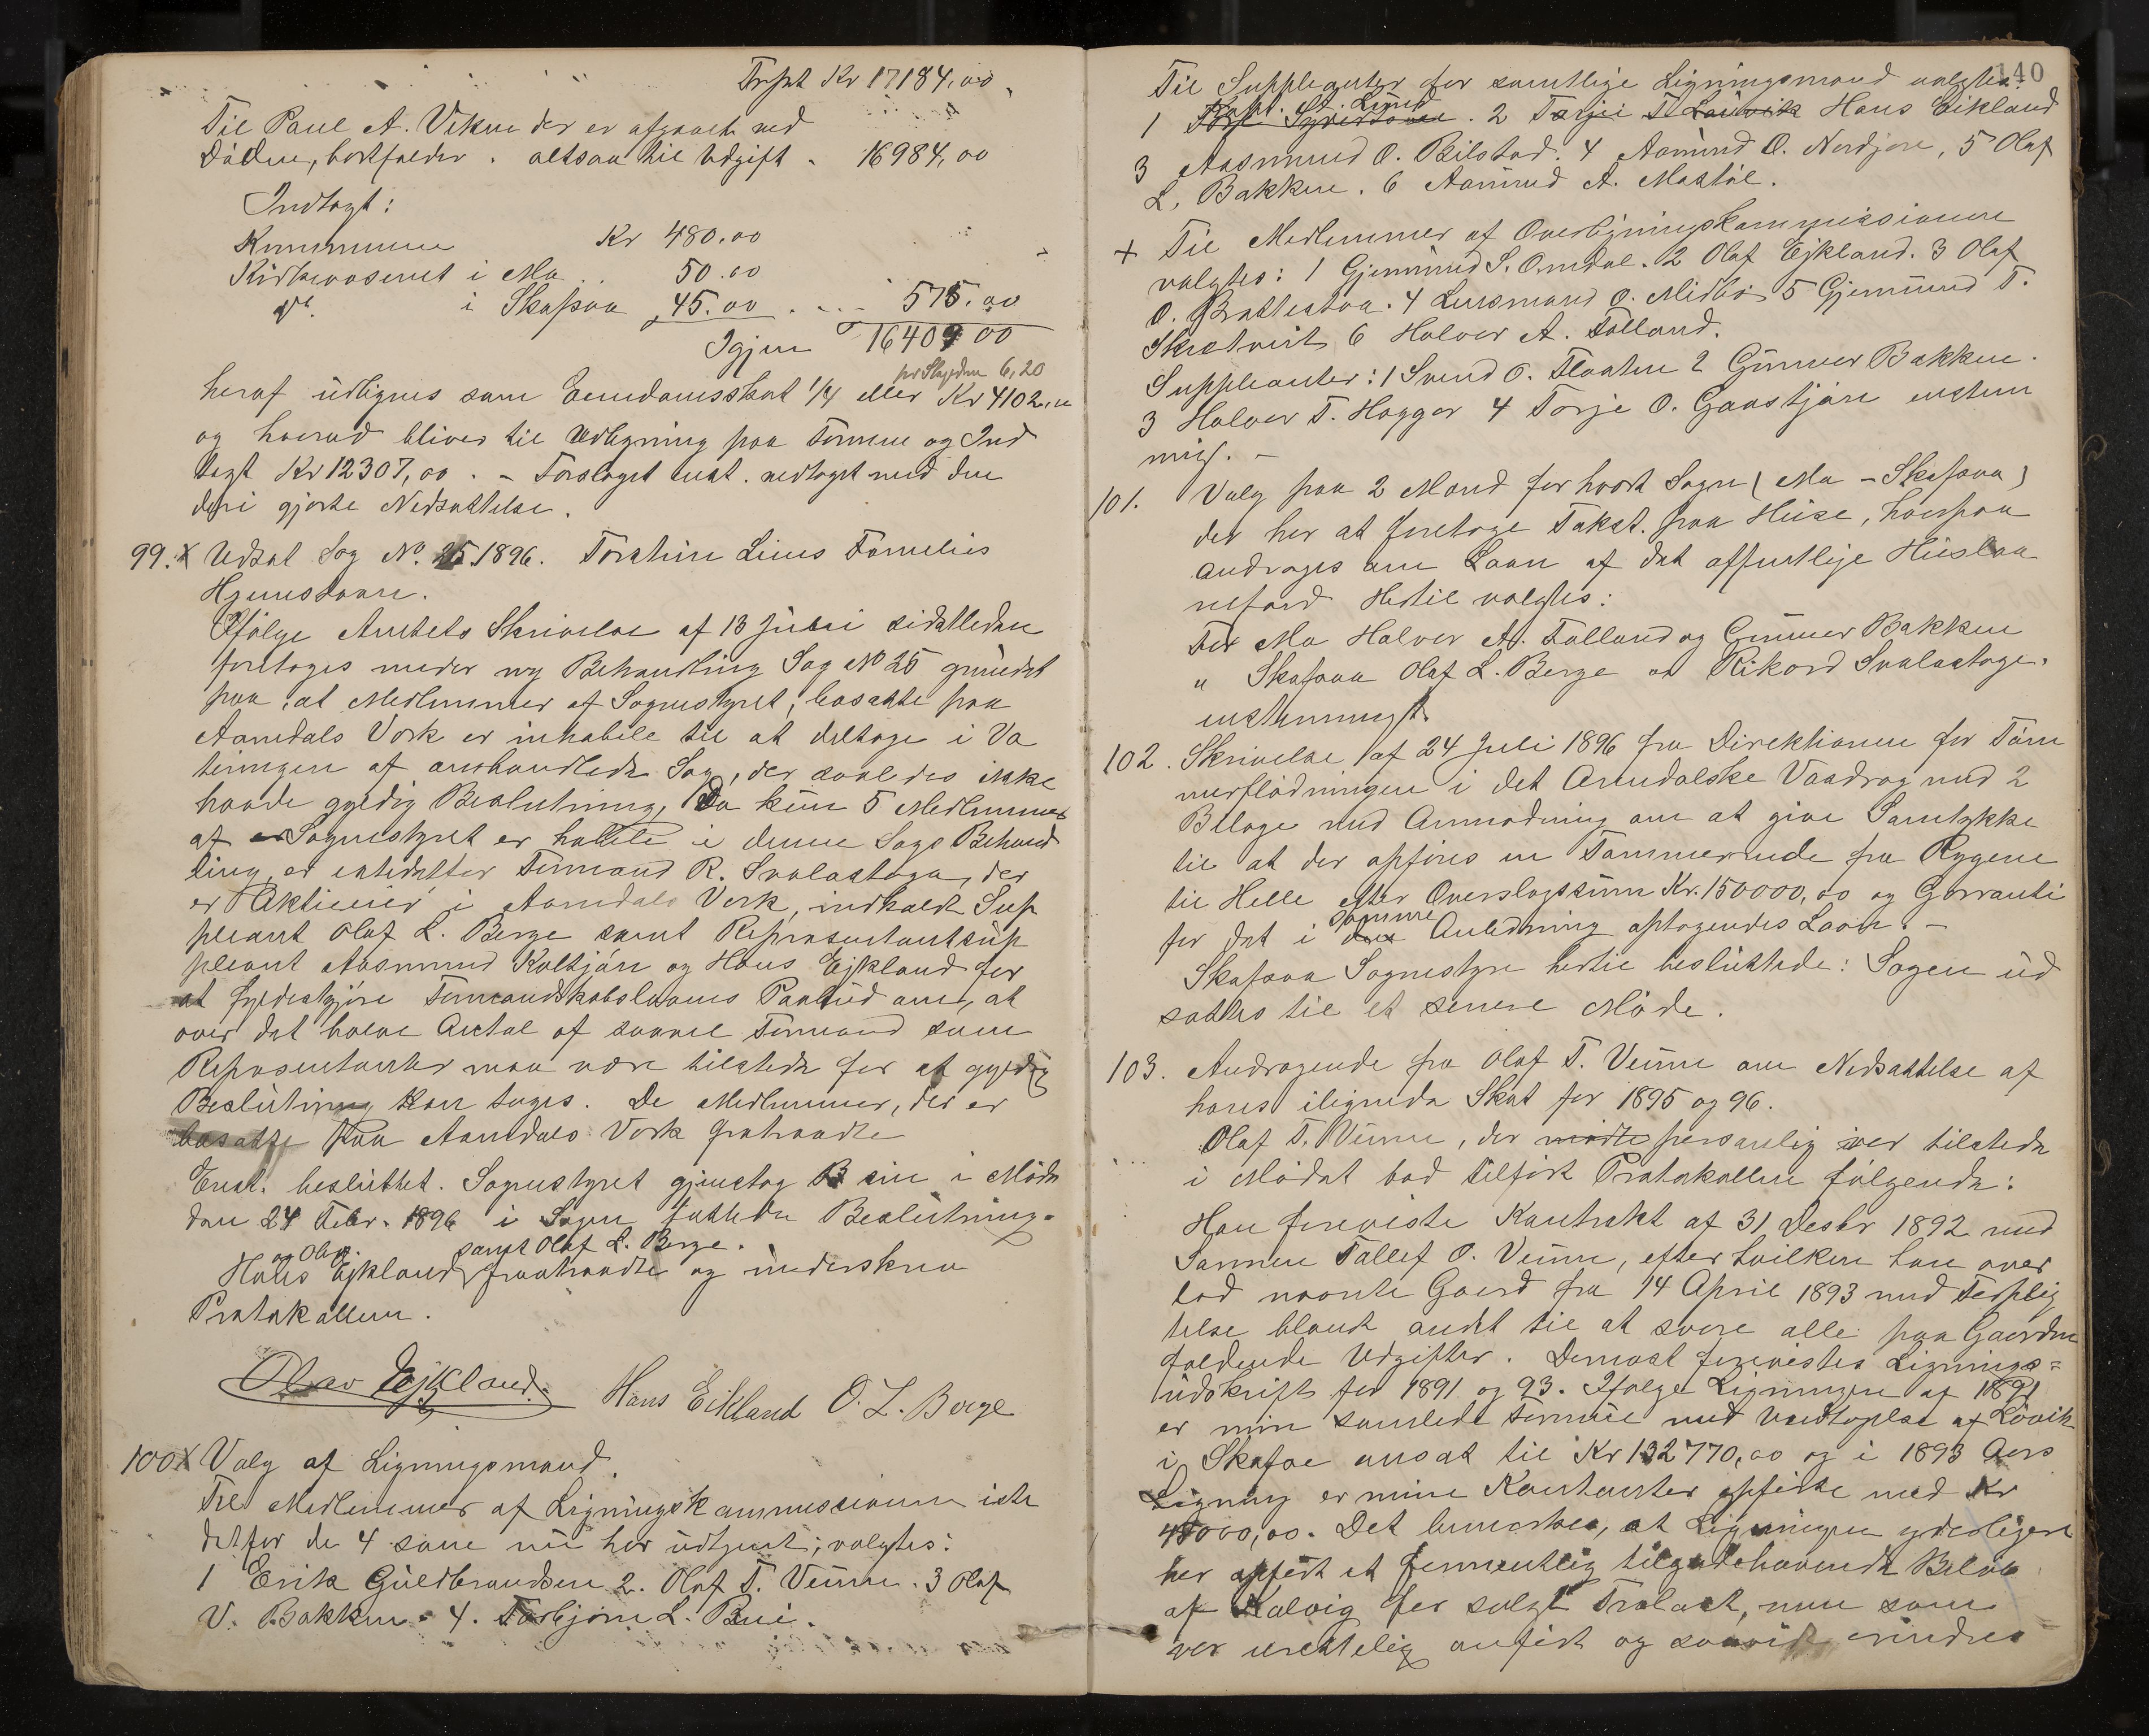 Trspt Kr 17184,00
Til Paul A. Vikne der er afgaaet ved
Døden, bortfalder. altsaa til Udgift. 16984,00
Indtægt:
Kommunen Kr 480.00
Kirkevæsenet i Mo 50.00
do. i Skafsaa 45.00 575.00
Igjen 16409 00
6,20
heraf udlignes som Eiendomsskat 1/4 eller Kr 4102
og hvorved bliver til Udligning paa Formue og Ind
tægt Kr 12307,00. - Forslaget enst. vedtaget med den
deri gjorte Nedsættelse.
99. x Udsat Sag No. 25 1896. Torstein Lines Families
Hjemstavn.
Ifølge Amtets Skrivelse af 13 Juni sidstleden
foretoges under ny Behandling Sag No 25 grundet
paa, at Medlemmer af Sognestyret, bosatte paa
Aamdals Værk er inhabile til at deltage i Vo
teringen af omhandlede Sag, der saaledes ikke
havde gyldig Beslutning, Da kun 5 Medlemmer
af Sognestyret er habile i denne Sags Behand
ling, er istedetfor Formand R. Svalastoga, der
er Aktieeier i Aamdals Værk, indkaldt Sup
pleant Olaf L. Berge samt Repræsentantsup
pleant Aasmund Kultjørn og Hans Ejkland for
at fyldestgjøre Formandskabslovens Paabud om, at
over det halve Antal af saavel Formænd som
Repræsentanter maa være tilstede for at gyldig
Beslutning kan tages. De Medlemmer, der er
bosatte paa Aamdals Værk fratraadte
Enst. besluttet. Sognestyret gjentog sin i Møde
den 24 Febr. 1896 i Sagen fattede Beslutning.
og Olav samt Olaf L. Berge.
Hans Ejkland fratraadte og underskrev
Protokollen.
Olav Ejkland. Hans Eikland O. L. Berge
100 x Valg af Ligningsmænd.
Til Medlemmer af Ligningskommissionen iste
detfor de 4 som nu har udtjent, valgtes:
1 Erik Guldbrandsen 2. Olaf T. Veum. 3 Olaf
V. Bakken. 4. Torbjørn L. Bui.
140
Til Suppleanter for samtlige Ligningsmænd valgtes:
St. Lund
1 Syvertsen. 2 Tarjei T. Hans Eikland
3 Aasmund O. Bilstad. 4 Aamund O. Nordjore, 5 Olaf
L. Bakken. 6 Aamund A. Mostøl.
+ Til Medlemmer af Overligningskommissionen
valgtes: 1 Gjermund S. Omdal. 2 Olaf Ejkland. 3 Olaf
O. Brattestaa. 4 Lensmand O. Midbø 5 Gjermund T.
Skretveit 6 Halvor A. Tolland.
Suppleanter: 1 Svend O. Flaaten 2 Gunner Bakken.
3 Halvor T. Hegger 4 Torje O. Gaastjørn enstem
mig. -
101. Valg paa 2 Mænd for hvert Sogn (Mo - Skafsaa)
der har at foretage Takst paa Huse, hvorpaa
andrages om Laan af det offentlige Huslaa
nefond Hertil valgtes:
For Mo Halvor A. Tolland og Gunner Bakken
" Skafsaa Olaf L. Berge og Rikard Svalastoga.
enstemmigt.
102. Skrivelse af 24 Juli 1896 fra Direktionen for Tøm
merflødningen i det Arendalske Vasdrag med 2
Bilage med Anmodning om at give Samtykke
til at der opføres en Tømmerrende fra Rygene
til Helle efter Overslagssum Kr. 150000,00 og Garranti
for det i samme Anledning optagendes Laan. -
Skafsaa Sognestyre hertil besluttede: Sagen ud
sættes til et senere Møde.
103. Andragende fra Olaf T. Veum om Nedsættelse af
hans ilignede Skat for 1895 og 96.
Olaf T. Veum, der mødte personlig var tilstede
i Mødet bad tilført Protokollen følgende:
Han foreviste Kontrakt af 31 Desbr 1892 med
Sønnen Tallef O. Veum, efter hvilken han over
lod nævnte Gaard fra 14 April 1893 med Forplig
telse blandt andet til at svare alle paa Gaarden
faldende Udgifter. Dernæst forevistes Lignings-
udskrift for 1891 og 93. Ifølge Ligningen af 1891
er min samlede Formue med Undtagelse af Løvik
i Skafsaa ansat til Kr 132770,00 og i 1893 Aars
Ligning er mine Kontanter opførte med Kr
45000,00. Det bemærkes, at Ligningen yderligere
har opført et formentlig tilgodehavende Beløb
af Kalvig for solgt Trælast, men som
var urettelig anført og saavidt erindres